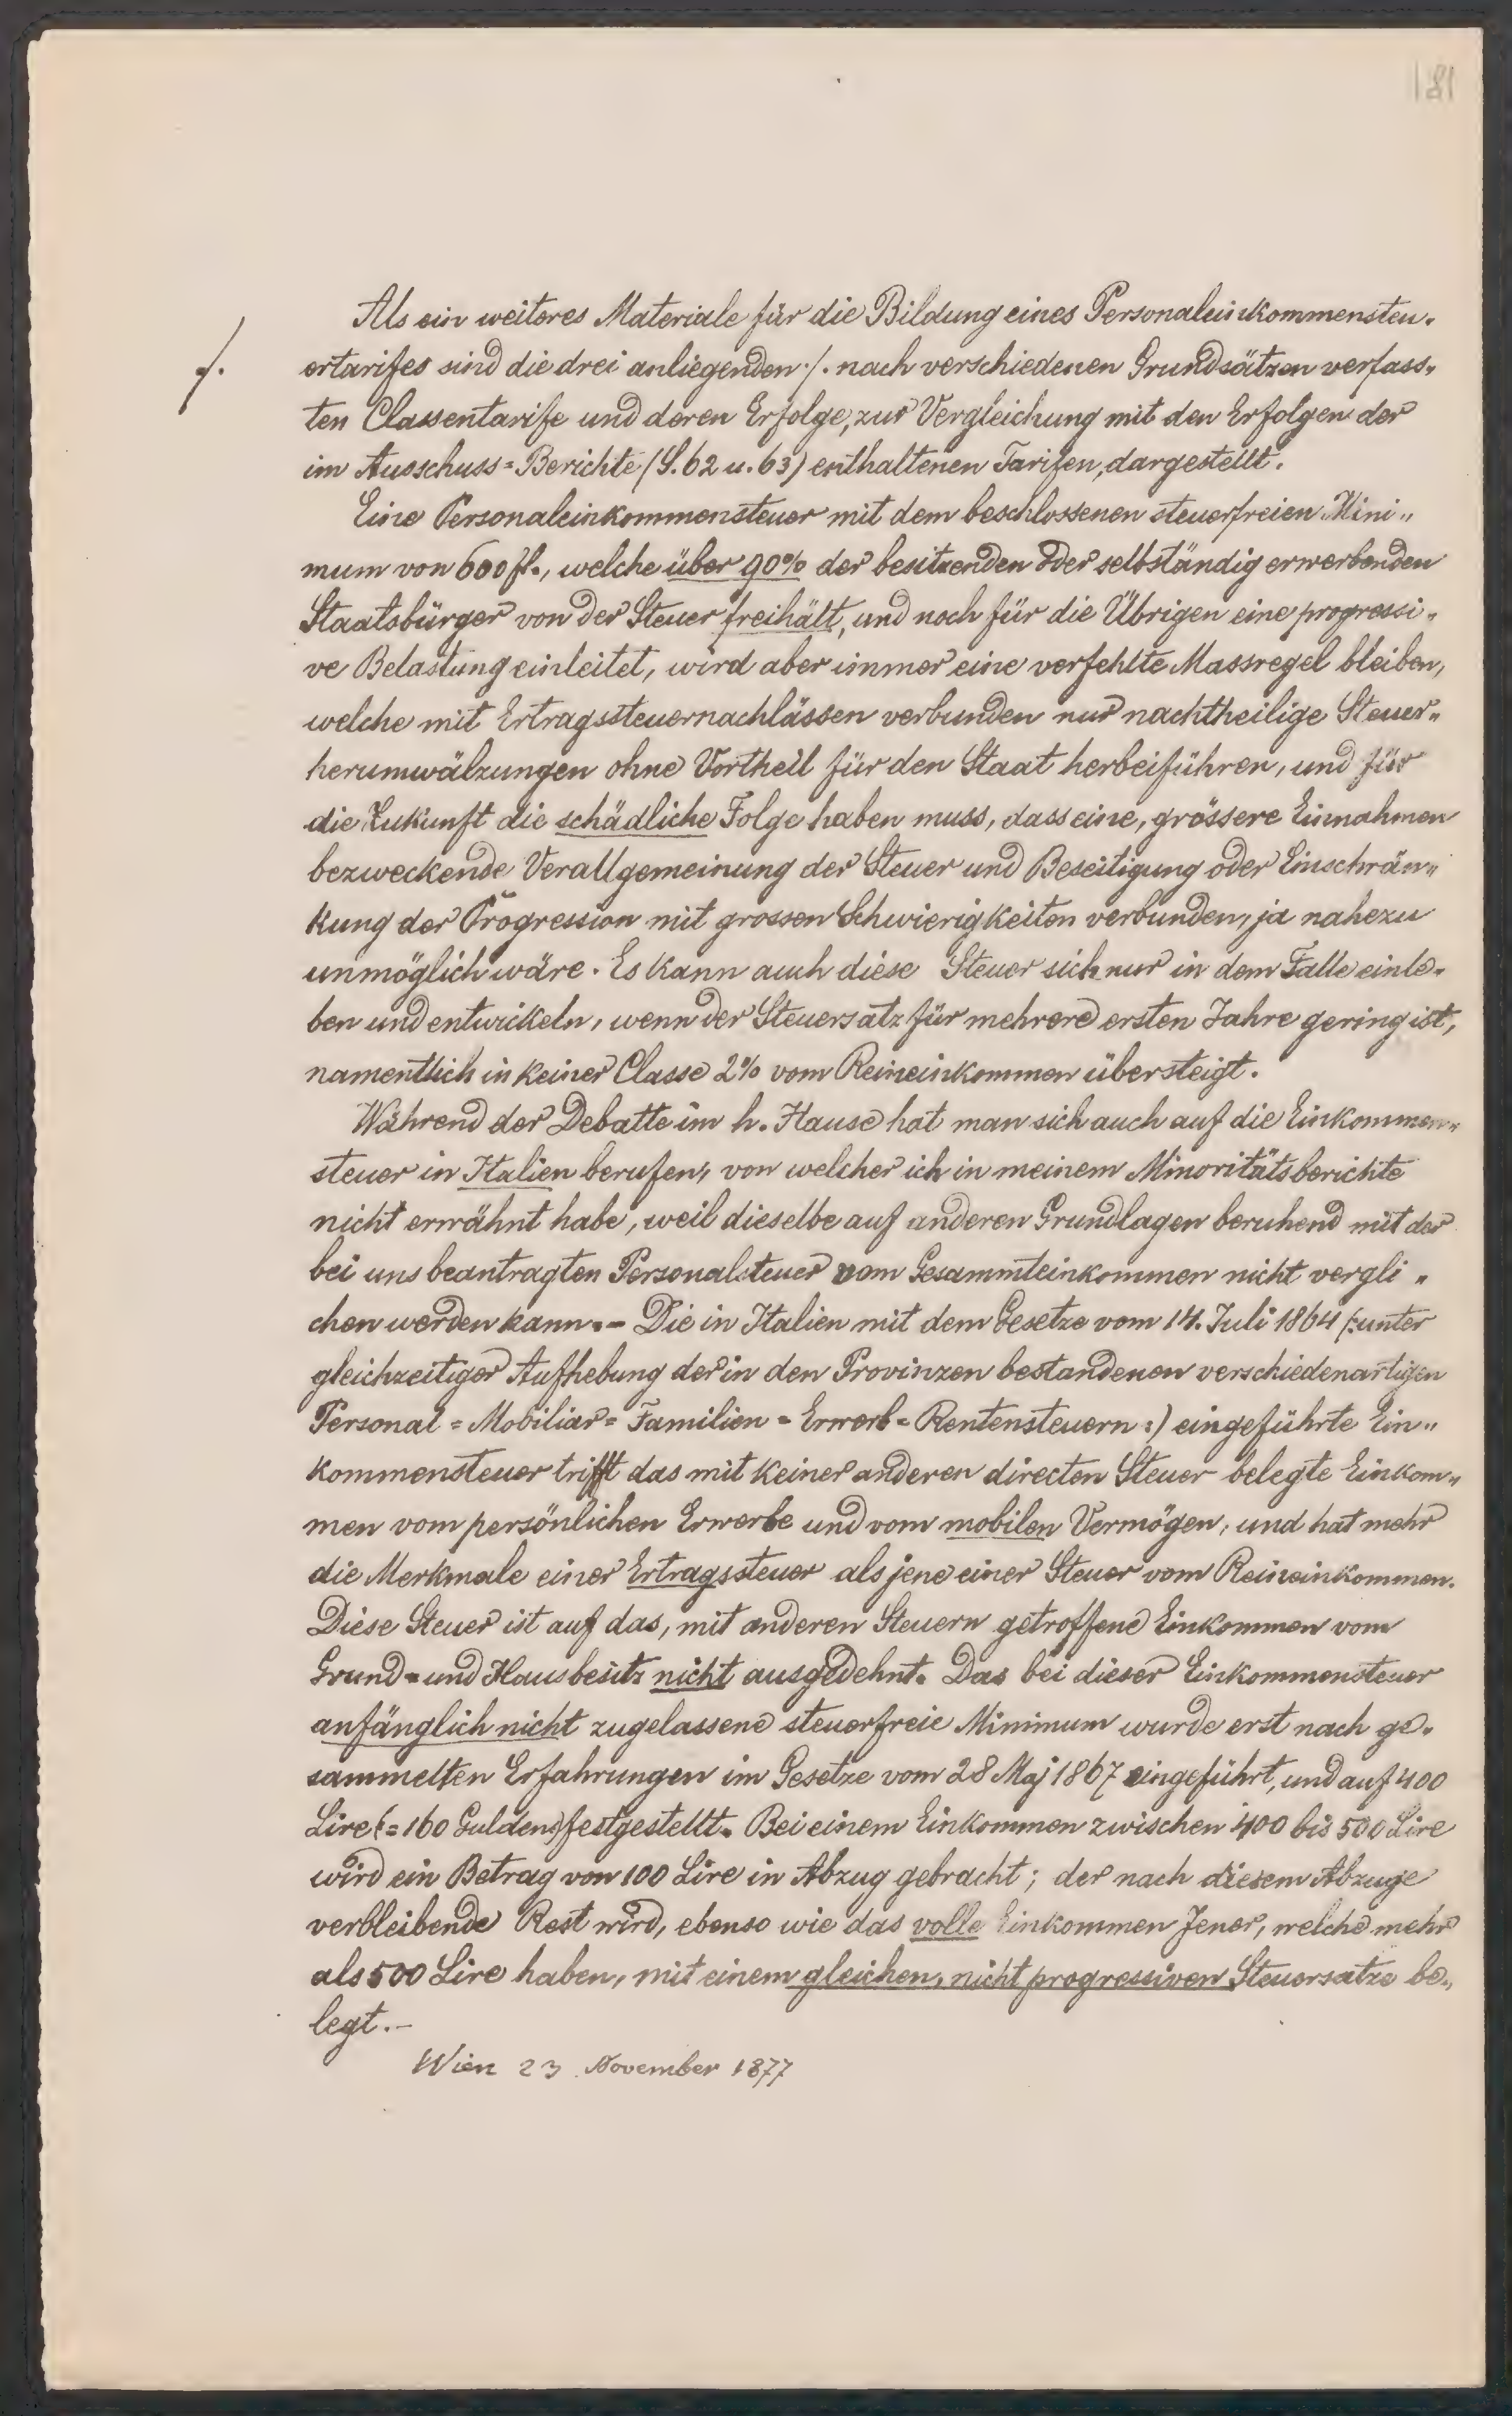 181
Als ein weiteres Materiale für die Bildung eines Personaleinkommensteu-
./. ertarifes sind die drei anliegenden ./. nach verschiedenen Grundsätzen verfass-
ten Classentarife und deren Erfolge, zur Vergleichung mit den Erfolgen der
im Ausschuss=Berichte (S. 62 u. 63) enthaltenen Tarifen, dargestellt.
Eine Personaleinkommensteuer mit dem beschlossenen steuerfreien Mini"
mum von 600 fl., welche über 90% der besitzenden oder selbständig erwerbenden
Staatsbürger von der Steuer freihält, und noch für die Übrigen eine progressi-
ve Belastung einleitet, wird aber immer eine verfehlte Massregel bleiben,
welche mit Ertragssteuernachlässen verbunden nur nachtheilige Steuer"
herumwälzungen ohne Vortheil für den Staat herbeiführen, und für
die Zukunft die schädliche Folge haben muss, dass eine, grössere Einnahmen
bezweckende Verallgemeinung der Steuer und Beseitigung oder Einschrän"
kung der Progression mit grossen Schwierigkeiten verbunden, ja nahezu
unmöglich wäre. Es kann auch diese Steuer sich nur in dem Falle einle-
ben und entwickeln, wenn der Steuersatz für mehrere ersten Jahre gering ist,
namentlich in keiner Classe 2% vom Reineinkommen übersteigt.
Während der Debatte im h. Hause hat man sich auch auf die Einkommen"
steuer in Italien berufen, von welcher ich in meinem Minoritätsberichte
nicht erwähnt habe, weil dieselbe auf anderen Grundlagen beruhend mit der
bei uns beantragten Personalsteuer vom Gesammteinkommen nicht vergli"
chen werden kann.- Die in Italien mit dem Gesetze vom 14. Juli 1864 (:unter
gleichzeitiger Aufhebung der in den Provinzen bestandenen verschiedenartigen
Personal=Mobiliar=Familien=Erwerb=Rentensteuern:) eingeführte Ein"
kommensteuer trifft das mit keiner anderen directen Steuer belegte Einkom"
men vom persönlichen Erwerbe und vom mobilen Vermögen, und hat mehr
die Merkmale einer Ertragssteuer als jene einer Steuer vom Reineinkommen.
Diese Steuer ist auf das, mit anderen Steuern getroffene Einkommen vom
Grund= und Hausbesitz nicht ausgedehnt. Das bei dieser Einkommensteuer
anfänglich nicht zugelassene steuerfreie Minimum wurde erst nach ge-
sammelten Erfahrungen im Gesetze vom 28 Maj 1867 eingeführt, und auf 400
Lire (=160 Gulden) festgestellt. Bei einem Einkommen zwischen 400 bis 500 Lire
wird ein Betrag von 100 Lire in Abzug gebracht; der nach diesem Abzuge
verbleibende Rest wird, ebenso wie das volle Einkommen Jener, welche mehr
als 500 Lire haben, mit einem gleichen, nicht progressiven Steuersatze be-
legt.-
Wien 23. November 1877